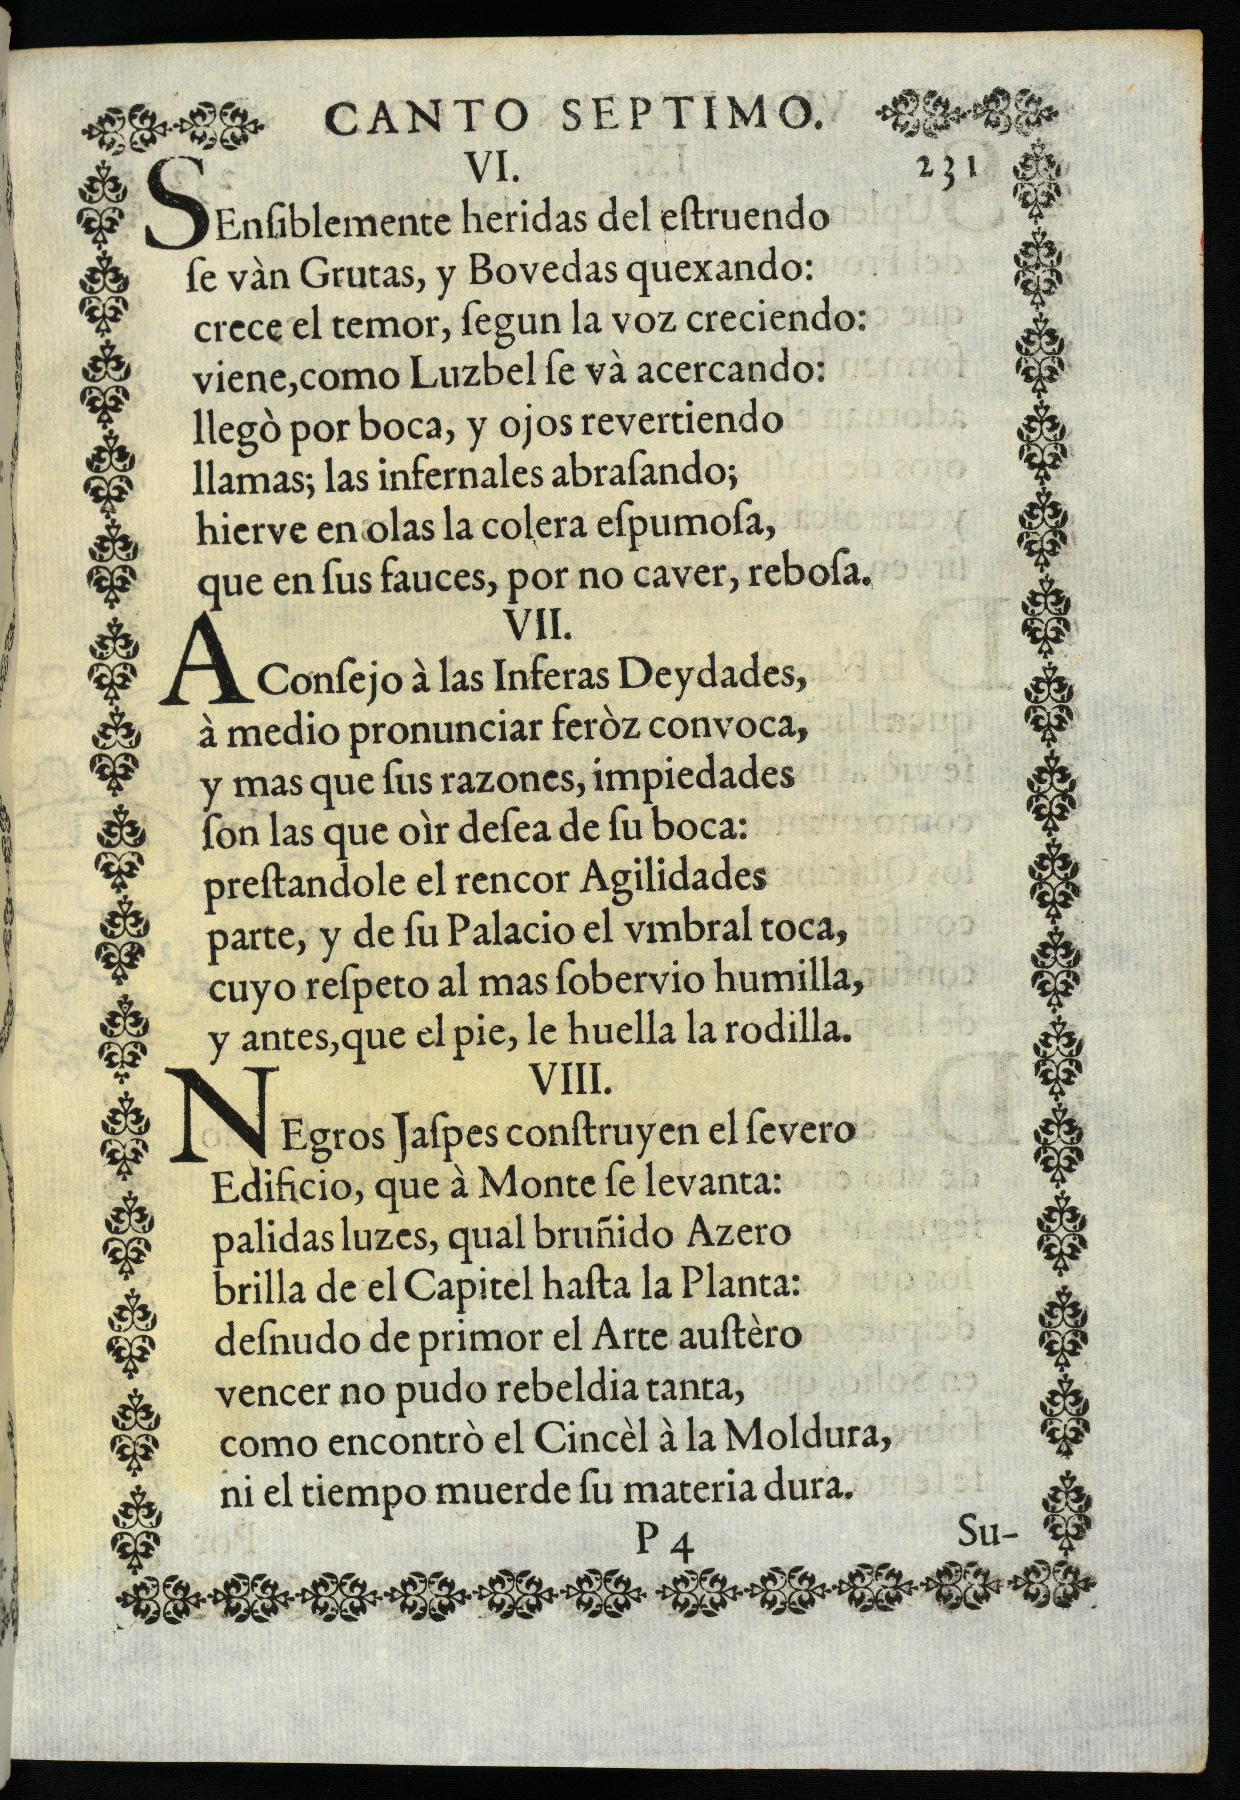 CANTO SEPTIMO.
VI. 231
SEnſiblemente heridas del eſtruendo
ſe vàn Grutas, y Bovedas quexando:
crece el temor, ſegun la voz creciendo:
viene,como Luzbel ſe và acercando:
llegò por boca, y ojos revertiendo
llamas; las infernales abraſando;
hierve en olas la colera eſpumoſa,
que en ſus fauces, por no caver, reboſa.
VII.
A Conſejo à las Inferas Deydades,
à medio pronunciar feròz convoca,
y mas que ſus razones, impiedades
ſon las que oìr deſea de ſu boca:
preſtandole el rencor Agilidades
parte, y de ſu Palacio el vmbral toca,
cuyo reſpeto al mas ſobervio humilla,
y antes,que el pie, le huella la rodilla.
VIII.
NEgros Jaſpes conſtruyen el ſevero
Edificio, que à Monte ſe levanta:
palidas luzes, qual bruñido Azero
brilla de el Capitel haſta la Planta:
deſnudo de primor el Arte auſtèro
vencer no pudo rebeldia tanta,
como encontrò el Cincèl à la Moldura,
ni el tiempo muerde ſu materia dura.
P 4 Su-